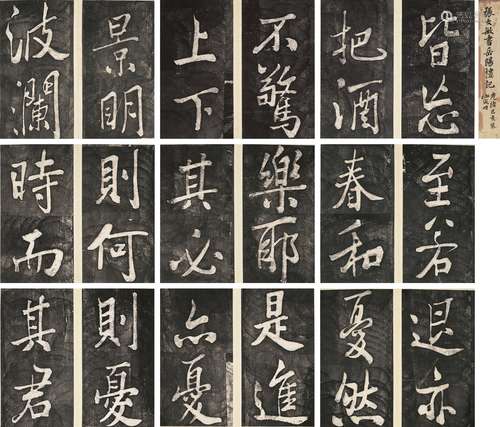 張文敏書岳陽樓記
皆忘
把酒
不驚
上下
景明
波瀾
至若
春和
樂耶
其必
則何
時而
退亦
憂然
是進
亦憂
則憂
其君